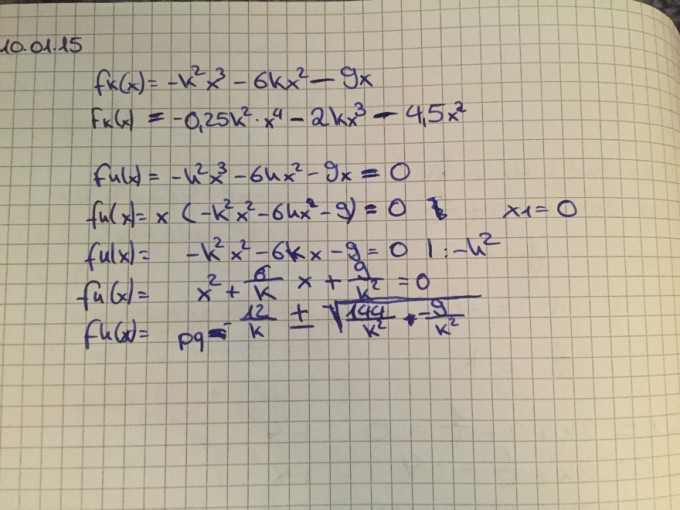 10.01.15
fk(x) = -k²x³ - 6kx² - 9x
Fk(x) = -0,25k² · x⁴ - 2kx³ - 4,5x²
fk(x) = -k²x³ - 6kx² - 9x = 0
fk(x) = x (-k²x² - 6kx² - 9) = 0 x1 = 0
fk(x) = -k²x² - 6kx - 9 = 0 | : -k²
fk(x) = x² + 6/k x + 9/k² = 0
fk(x) = pq = - 12/k ± √144/k² - 9/k²